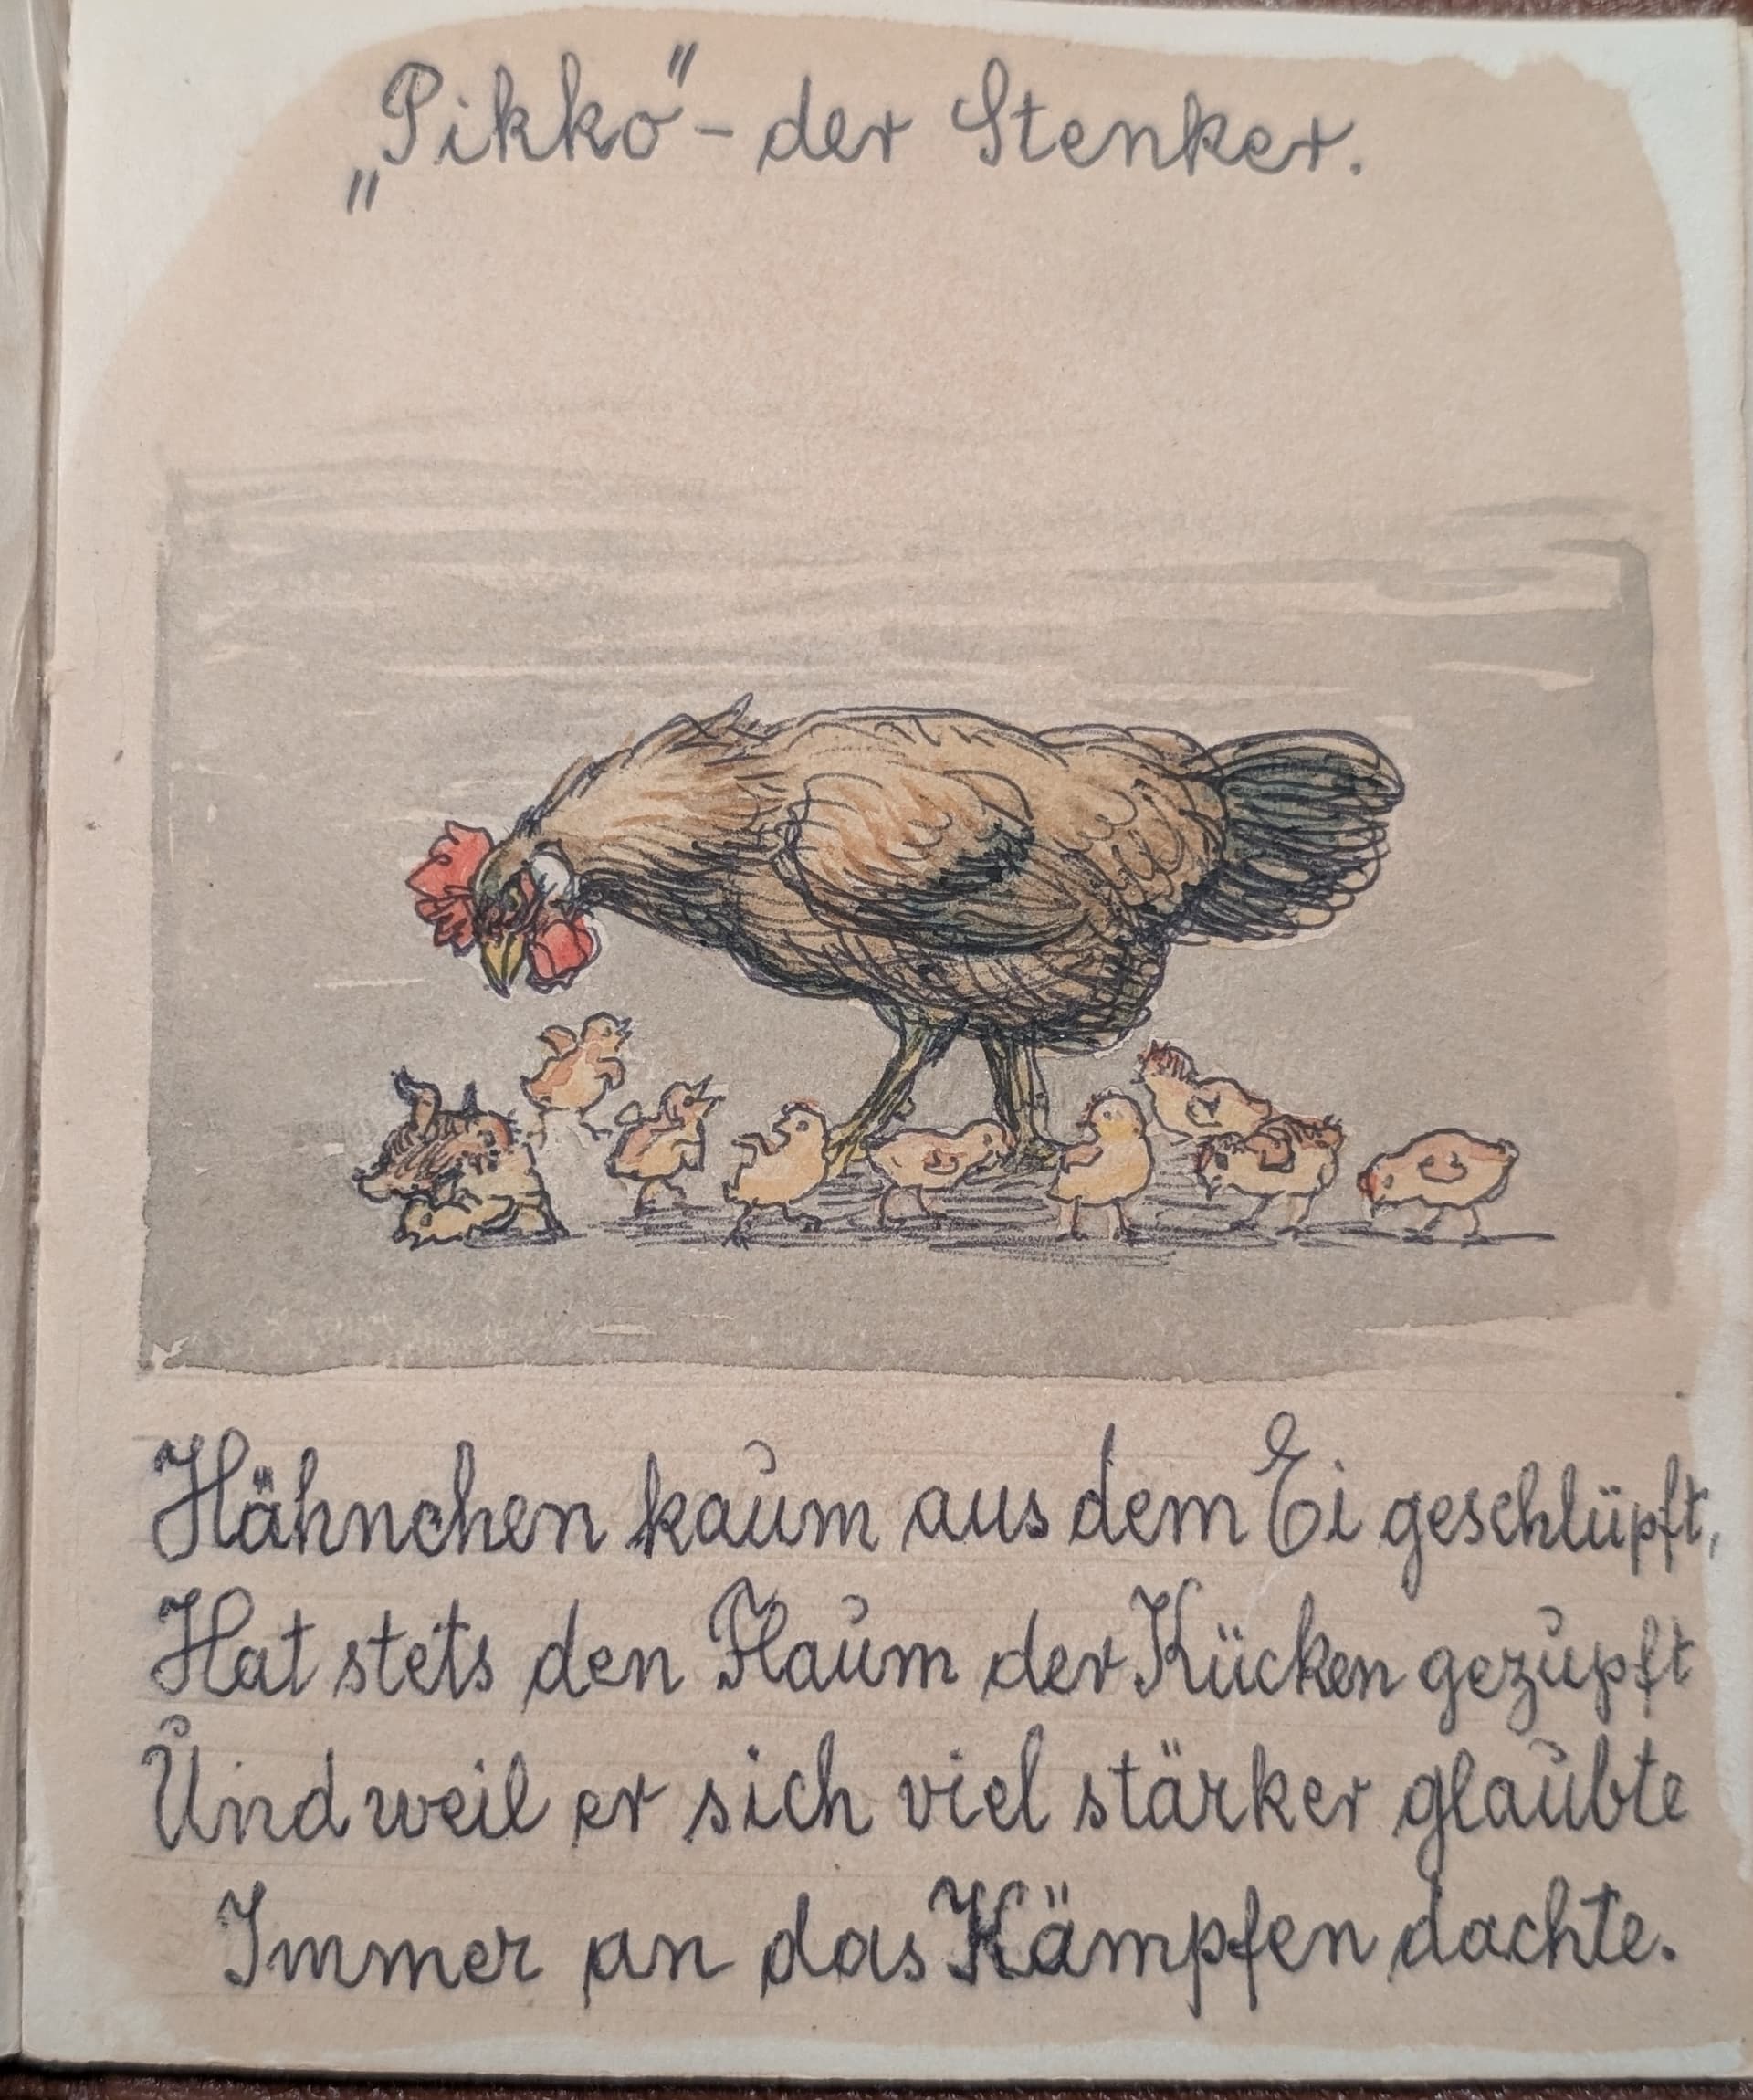 „Pikko“ - der Stenker.
Hähnchen kaum aus dem Ei geschlüpft,
Hat stets den Flaum der Kücken gezupft
Und weil er sich viel stärker glaubte
Immer an das Kämpfen dachte.